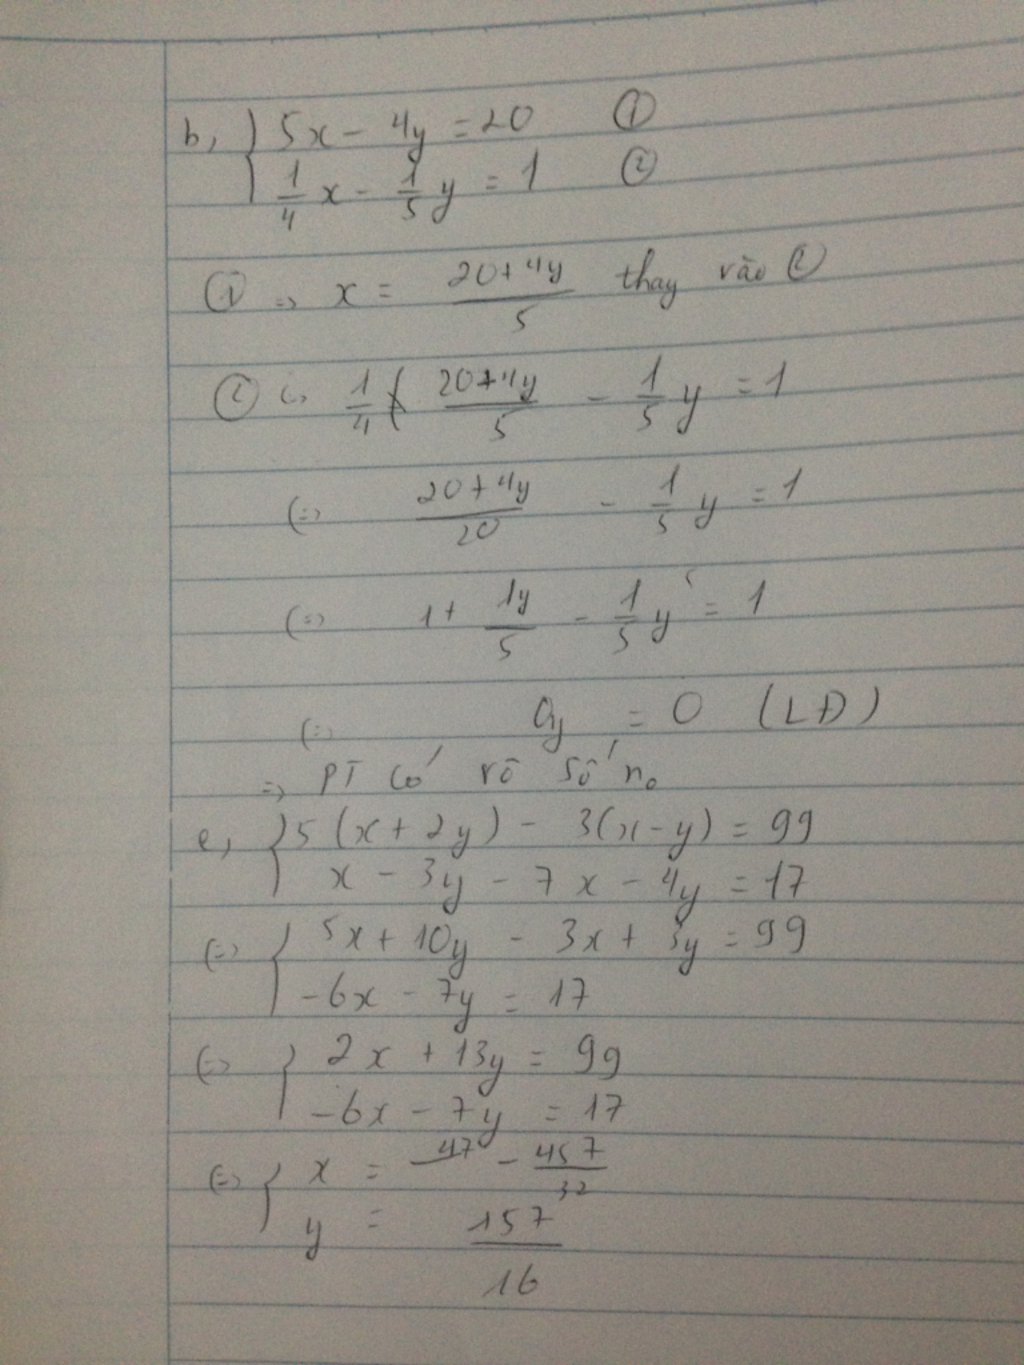 b, { 5x - 4y = 20 ①
1/4 x - 1/5 y = 1 ②
① => x = (20+4y)/5 thay vào ②
② (=> 1/4 ( (20+4y)/5 - 1/5 y = 1
(=> (20+4y)/20 - 1/5 y = 1
(=> 1 + 1y/5 - 1/5 y = 1
(=> 0y = 0 (LĐ)
=> PT có vô số no
e, { 5(x+2y) - 3(x-y) = 99
x - 3y - 7x - 4y = 17
(=> { 5x + 10y - 3x + 3y = 99
-6x - 7y = 17
(=> { 2x + 13y = 99
-6x - 7y = 17
(=> { x = - 457/32
y = 157/16